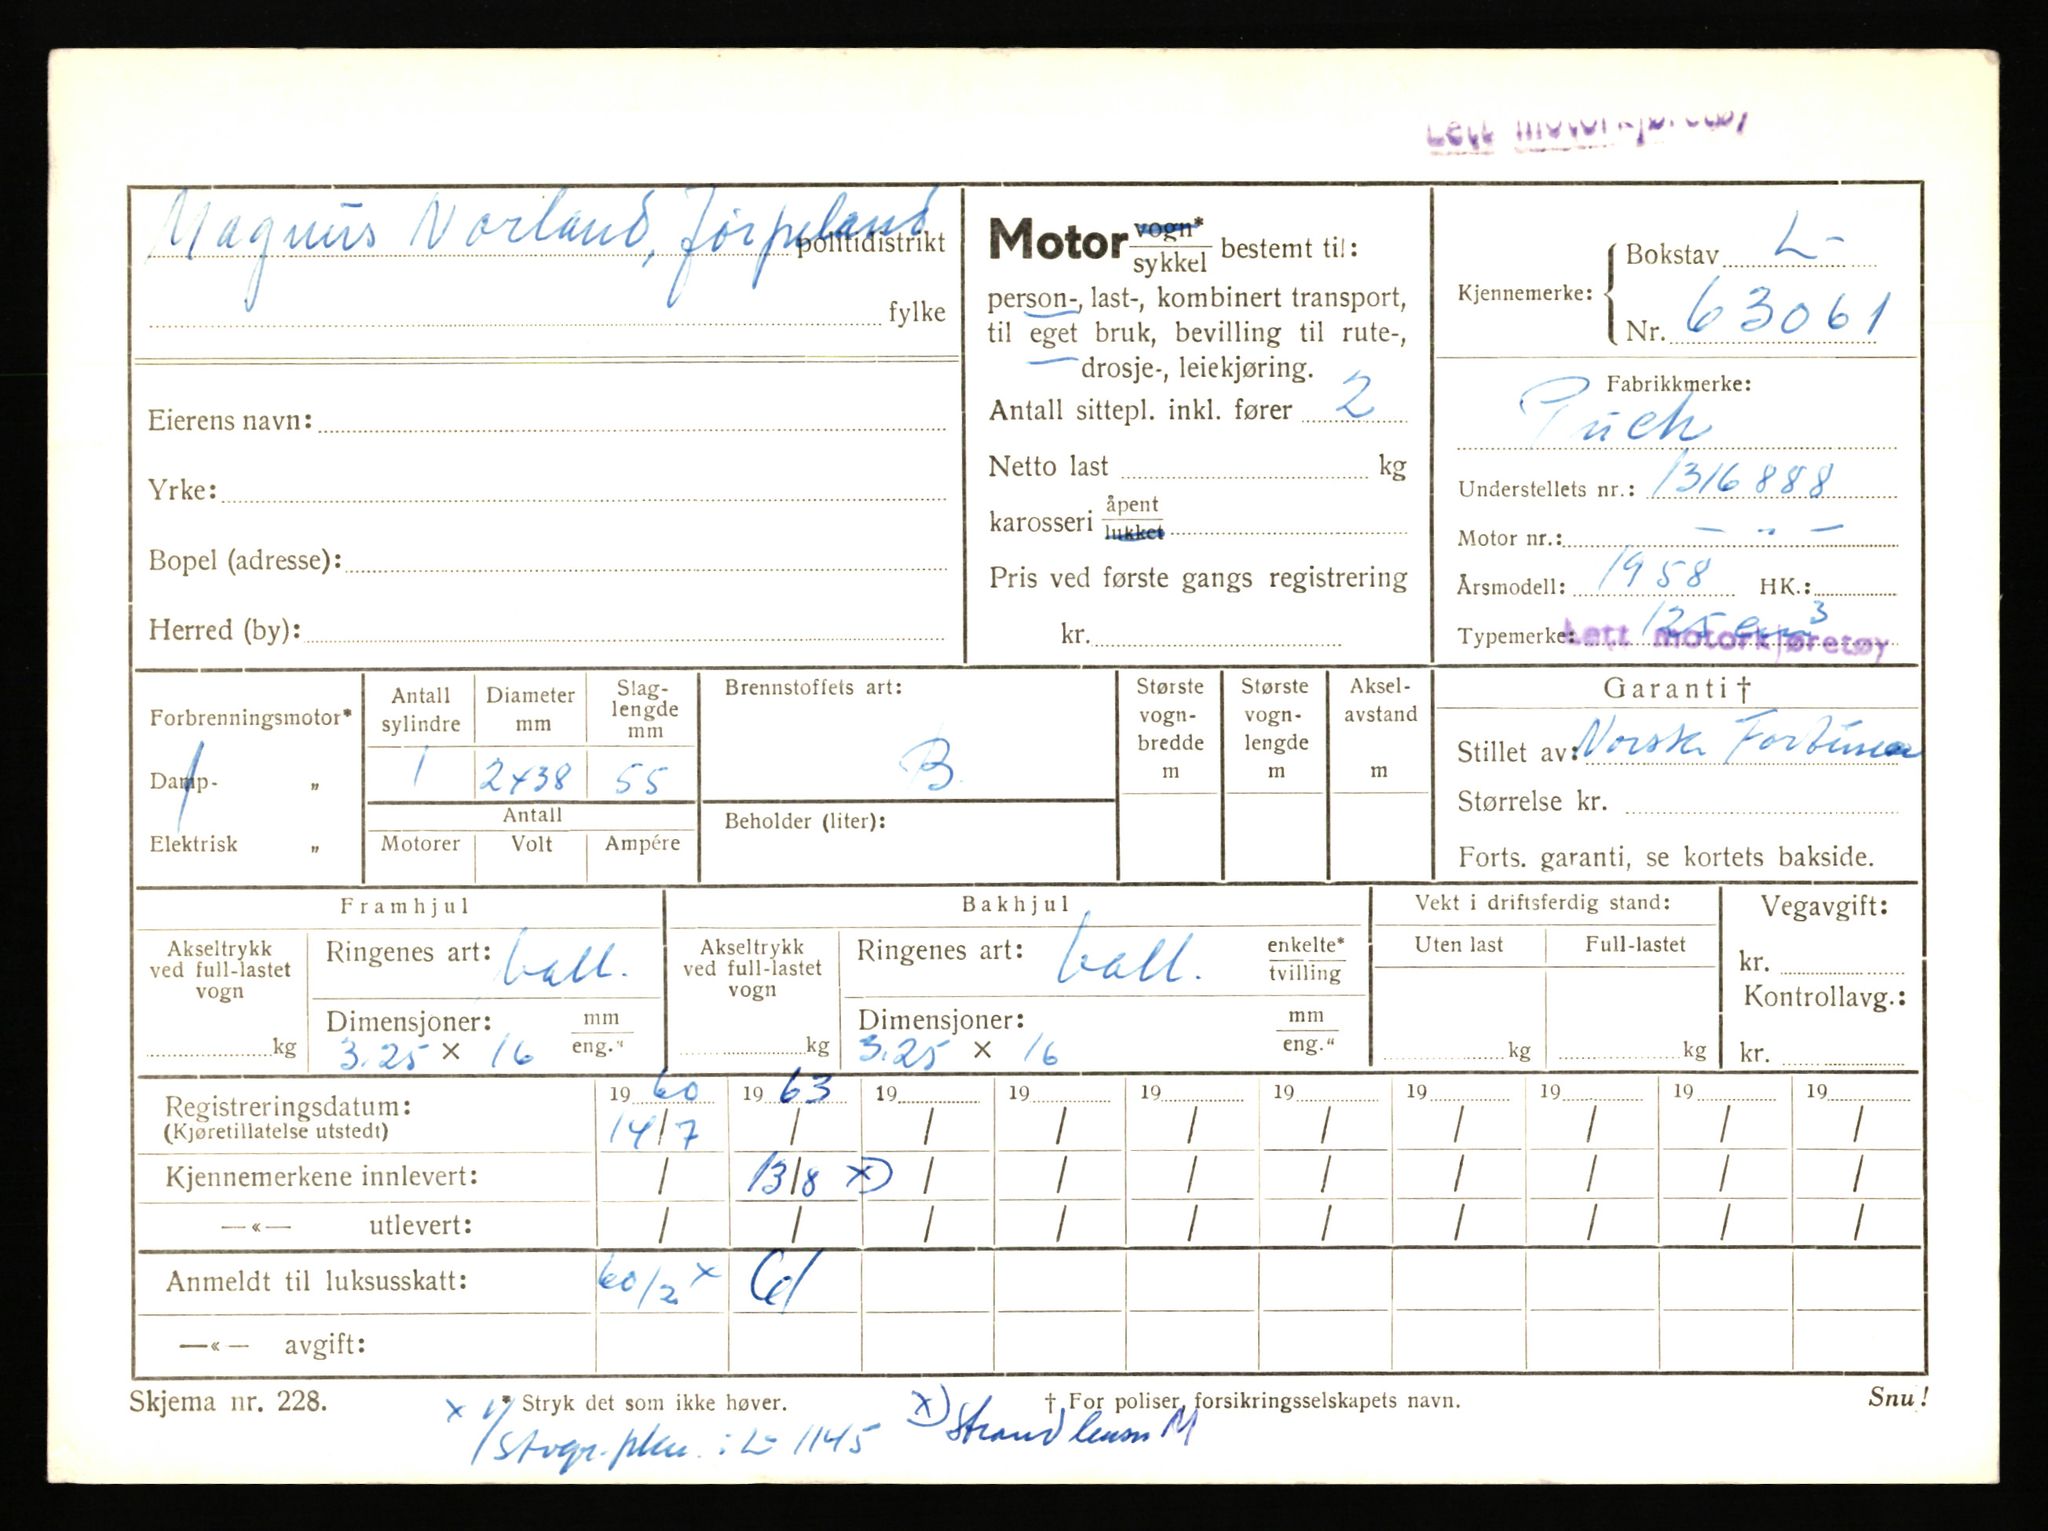 Lett motorkjøretøy
Magnus Norland, Jørpeland politidistrikt
fylke
Eierens navn:
Yrke:
Bopel (adresse):
Herred (by):
Motor vogn* sykkel bestemt til:
person-, last-, kombinert transport,
til eget bruk, bevilling til rute-,
drosje-, leiekjøring.
Antall sittepl. inkl. fører 2
Netto last kg
karosseri åpent lukket
Pris ved første gangs registrering
kr.
Kjennemerke: Bokstav L-
Nr. 63061
Fabrikkmerke:
Puch
Understellets nr.: 1316888
Motor nr.: — „ —
Årsmodell: 1958 HK.:
Typemerke: 125 cm3
Lett motorkjøretøy
Forbrenningsmotor*
Damp- „
Elektrisk „
Antall sylindre
1
Diameter mm
2x38
Slag-
lengde
mm
55
Antall
Motorer Volt Ampére
Brennstoffets art:
B
Beholder (liter):
Største
vogn-
bredde
m
Største
vogn-
lengde
m
Aksel-
avstand
m
Garanti †
Stillet av: Norsk Fortuna
Størrelse kr.
Forts. garanti, se kortets bakside.
Framhjul
Akseltrykk
ved full-lastet
vogn
kg
Ringenes art: ball.
Dimensjoner: mm
3.25 × 16 eng."
Bakhjul
Akseltrykk
ved full-lastet
vogn
kg
Ringenes art: ball. enkelte* tvilling
Dimensjoner: mm
3.25 × 16 eng."
Vekt i driftsferdig stand:
Uten last Full-lastet
kg kg
Vegavgift:
kr.
Kontrollavg.:
kr.
Registreringsdatum: 19 60 19 63 19 19 19 19 19 19 19 19
(Kjøretillatelse utstedt) 14/7 / / / / / / / / /
Kjennemerkene innlevert: / 13/8 x) / / / / / / / /
—«— utlevert: / / / / / / / / / /
Anmeldt til luksusskatt: 60/2 x
—«— avgift:
Skjema nr. 228. * Stryk det som ikke høver. † For poliser, forsikringsselskapets navn. Snu!
x : L- 1145
x) Strand